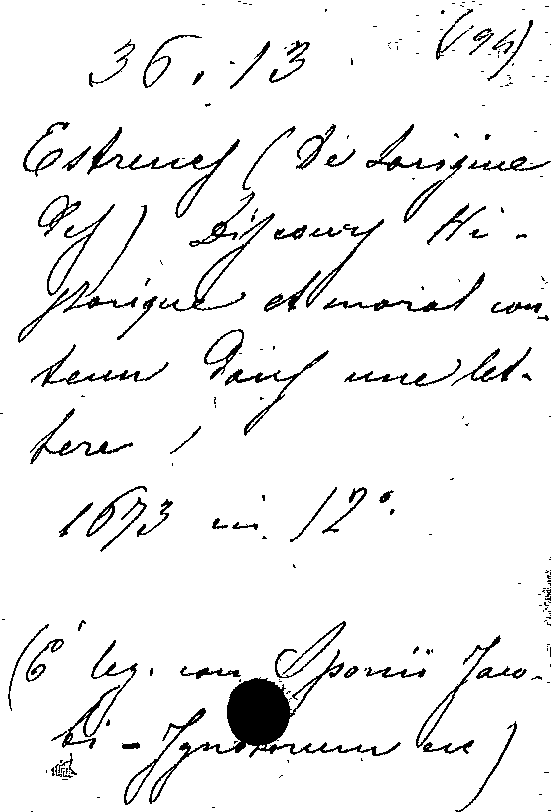 36.13 (94)
Estrenes (De Lorigine
des) Discours Hi-
storique et moral con-
tenu dans une let-
tere,
1673 in 12°.
(È leg. con Sponii Jaco-
bi - Ignotorum etc)